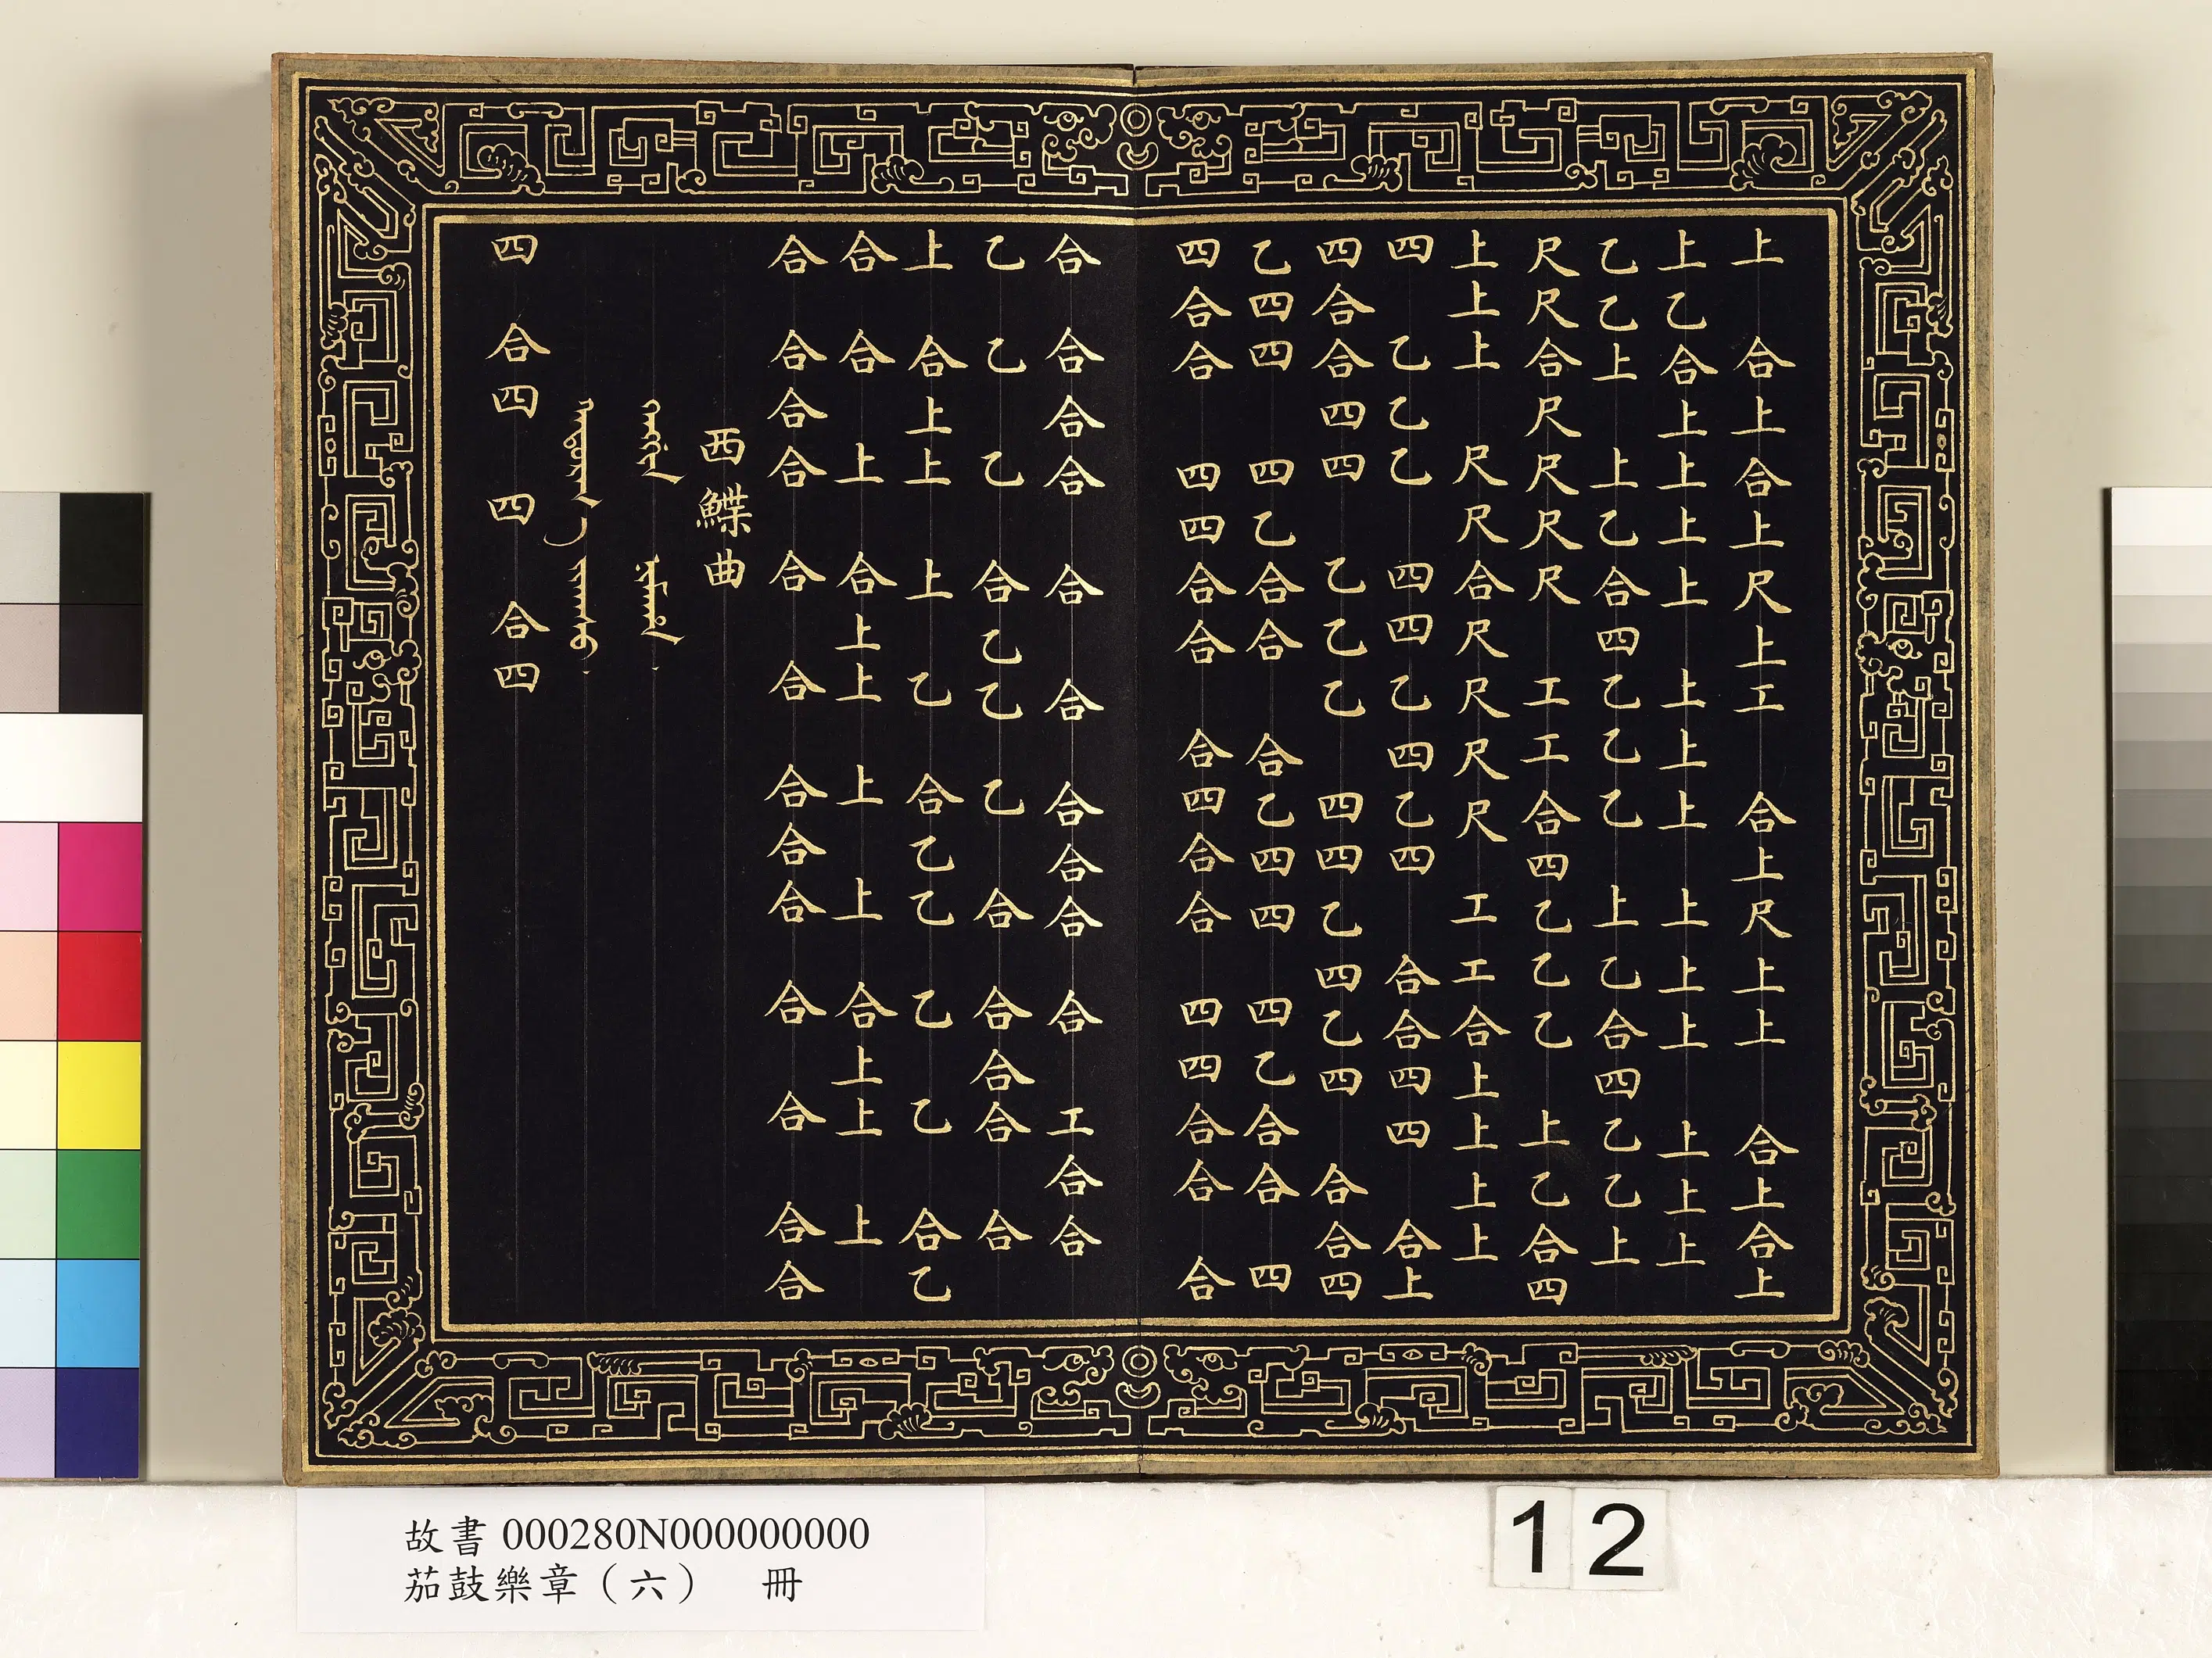 上合上合上尺上工合上尺上上合上合上
上乙合上上上上上上上上上上上上上
乙乙上上乙合四乙乙乙上乙合四乙乙上
尺尺合尺尺尺尺工工合四乙乙乙上乙合四
上上上尺尺合尺尺尺尺工工合上上上上
四乙乙乙四四乙四乙四合合四四合上
四合合四四乙乙乙四四乙四乙四合合四
乙四四四乙合合合乙四四四乙合合四
四合合四四合合合四合合四四合合合
合合合合合合合合合合工合合
乙乙乙合乙乙乙合合合合合
上合上上上乙合乙乙乙乙合乙
合合上合上上上上合上上上
合合合合合合合合合合合合合
西鰈曲
四合四四合四
故書 000280N000000000
茄鼓樂章（六） 冊
12